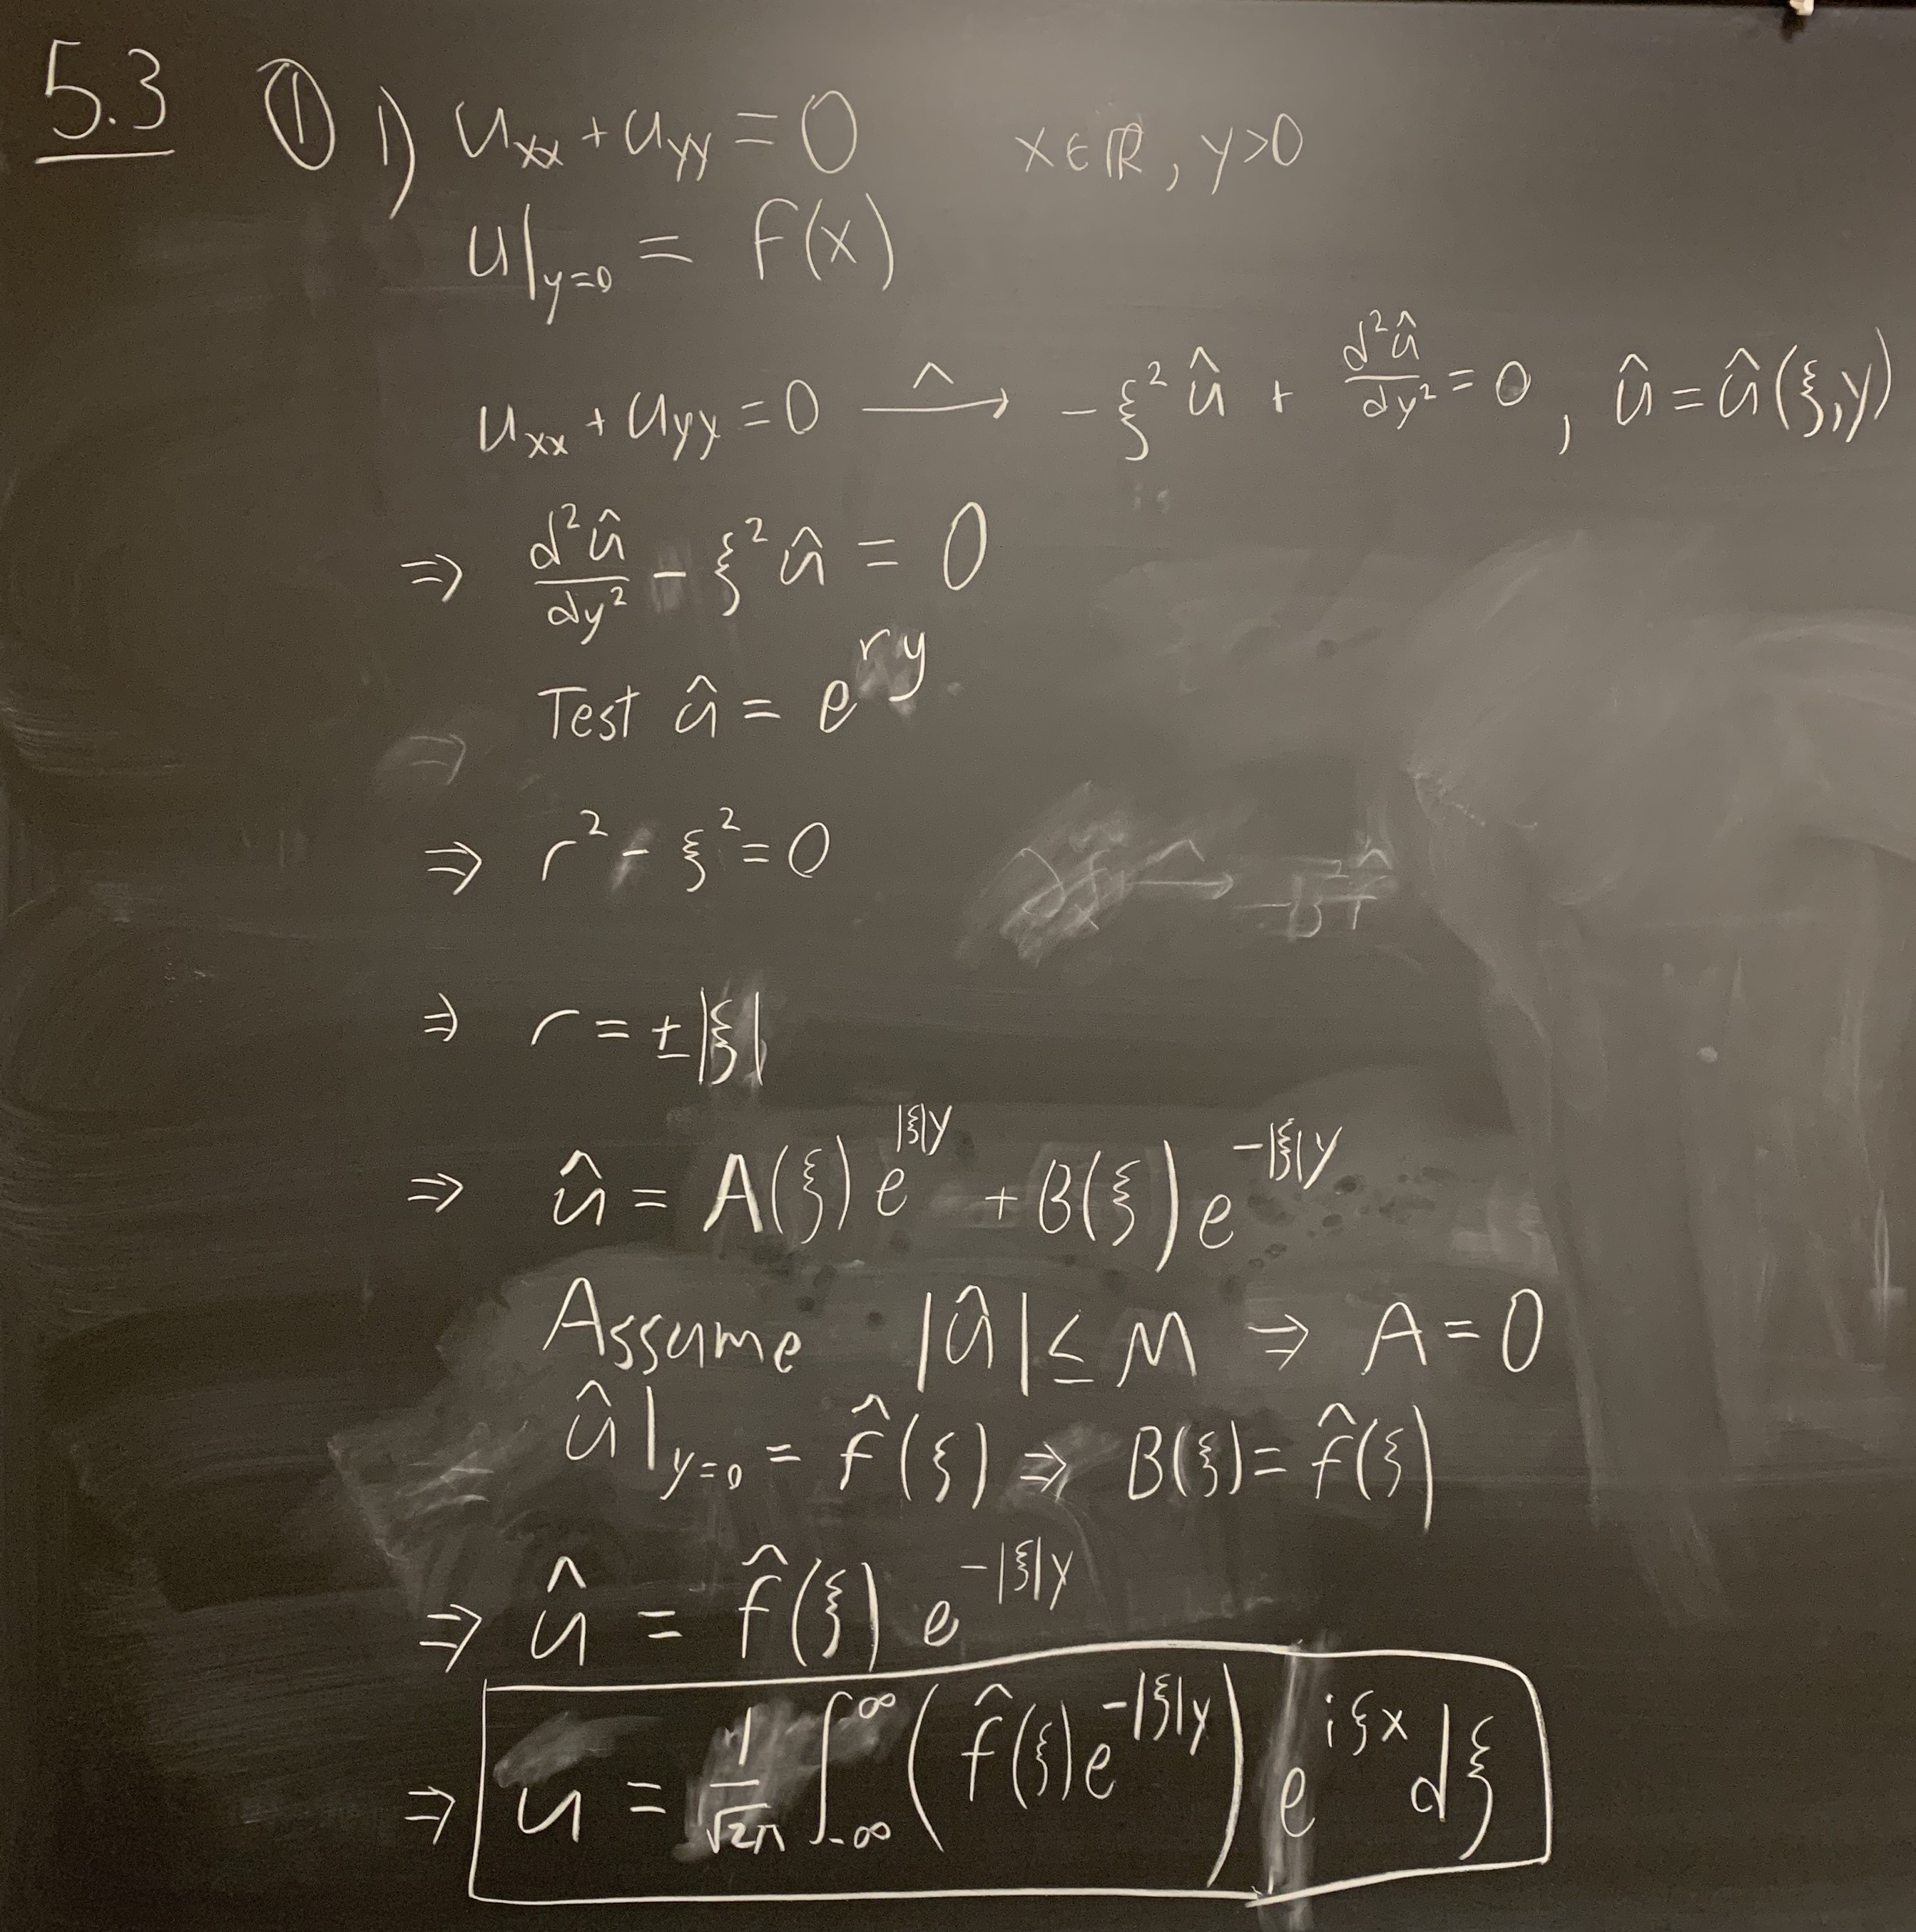 5.3 ① 1) u_xx + u_yy = 0 x∈ℝ, y>0
u|_y=0 = f(x)
u_xx + u_yy = 0 —^→ -ξ² û + d²û/dy² = 0, û = û(ξ,y)
⇒ d²û/dy² - ξ² û = 0
Test û = e^ry
⇒ r² - ξ² = 0
⇒ r = ±|ξ|
⇒ û = A(ξ) e^|ξ|y + B(ξ) e^-|ξ|y
Assume |û| ≤ M ⇒ A = 0
û|_y=0 = f̂(ξ) ⇒ B(ξ) = f̂(ξ)
⇒ û = f̂(ξ) e^-|ξ|y
⇒ u = 1/√2π ∫_-∞^∞ (f̂(ξ)e^-|ξ|y) e^iξx dξ